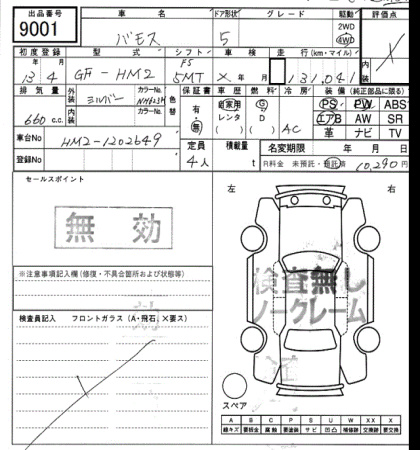 出品番号 車名 ドア形状 グレード 駆動 評価点
9001 バモス 5 2WD 4WD X
初度登録 型式 シフト 車検 走行(km・マイル)
年 月 F5 年 月
13 4 GF-HM2 5MT X 131,041
排気量 外装 カラーNo. 色替 保証書 車歴 燃料 冷房 装備(純正部品に限る)
660 c.c. シルバー NH623M 有・無 自家用 レンタ ( ) G D ( ) AC PS PW ABS
エアB AW SR
革 ナビ TV
内装 カラーNo.
車台No HM2-1202649 定員 積載量 名変期限 年 月 日
登録No 4人 t R料金 未預託・預託済 10,290円
セールスポイント
無効
左 右
※注意事項記入欄(修復・不具合箇所および状態等)
検査無し
ノークレーム
検査員記入 フロントガラス(A・飛石、×要ス)
スペア
A B C P S U W X XX
線キズ 要板金 腐蝕 要塗装 サビ 凹凸 補修跡 要交換